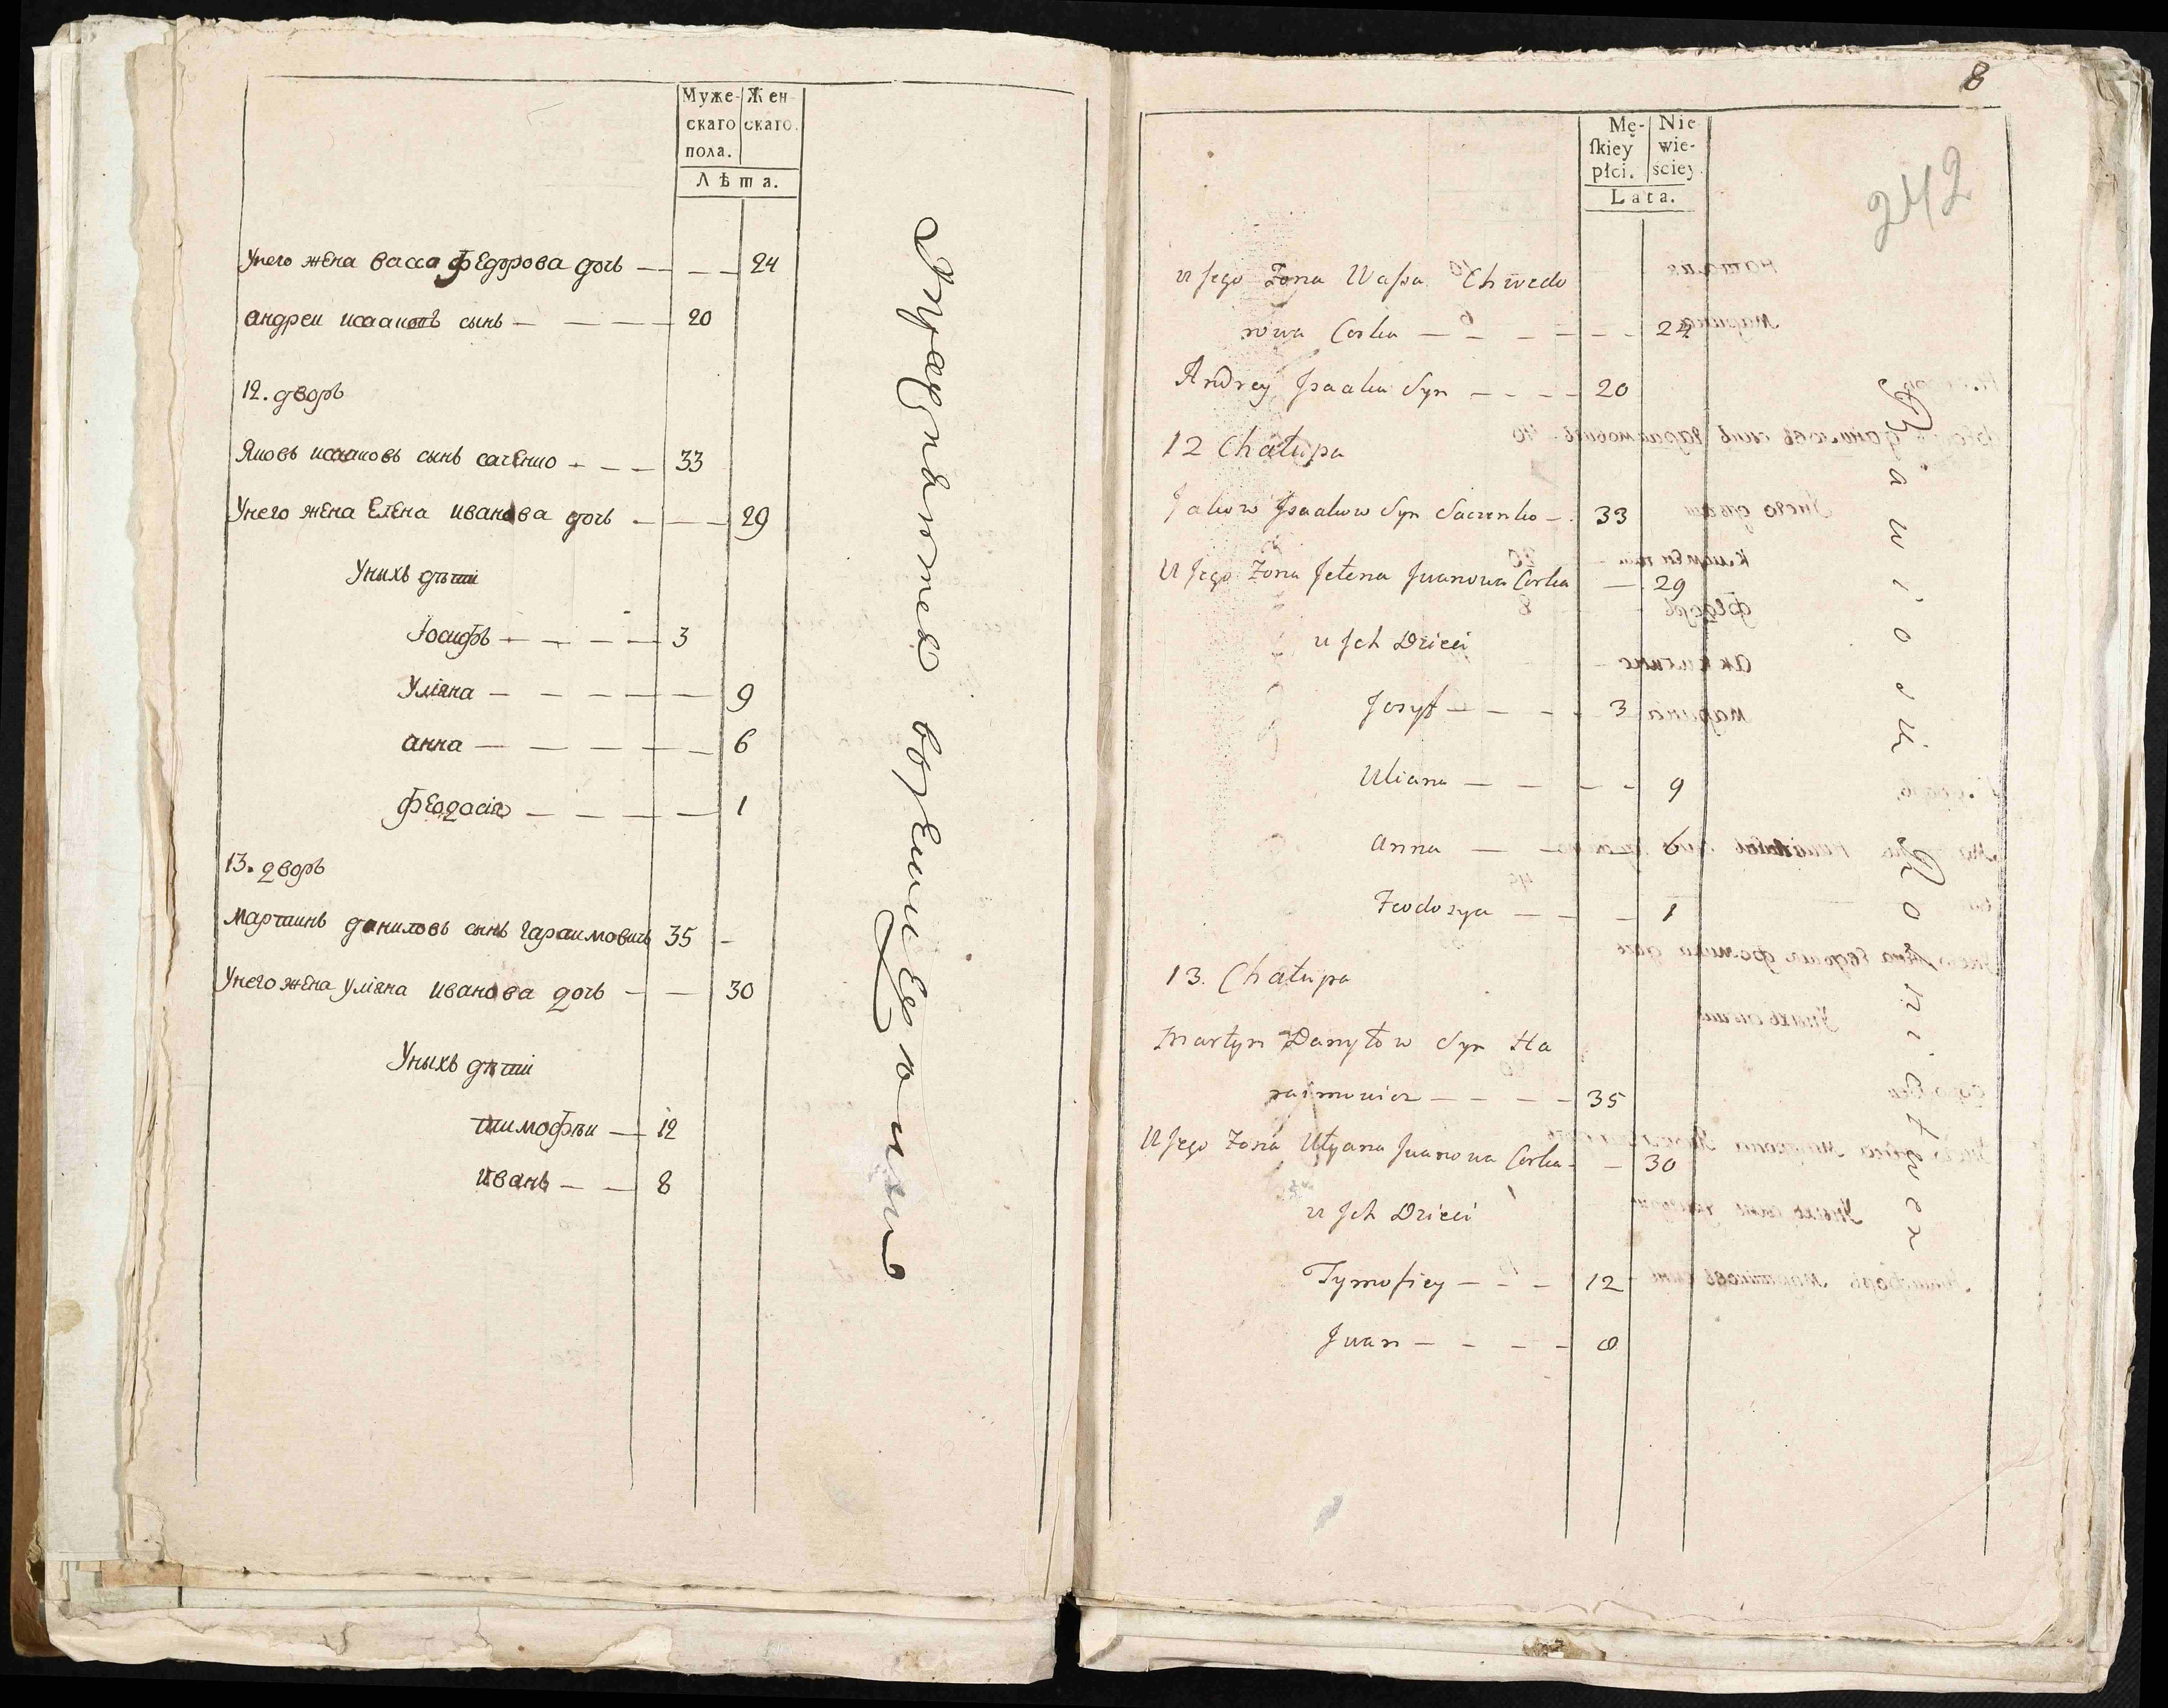 Муже- Жен-
скаго скаго.
пола.
Лѣта.
Унего жена васса федорова дочь — — — 24
андреи исааковъ сынъ — — — — 20
12. дворъ
Яковъ исааковъ сынъ саченко — — — 33
Унего жена Елена иванова дочь — — — 29
Уныхъ дѣти
Іосифъ — — — — 3
Уліяна — — — — — 9
анна — — — — — 6
феодосія — — — — 1
13. дворъ
мартинъ даниловъ сынъ гараимовичъ 35 —
Унего жена уліяна иванова дочь — — 30
Уныхъ дѣти
тимофѣи — 12
иванъ — — 8
8
242
Mę- Nie
ſkiey wie-
płci. sciey.
Lata.
u Jego Żona Waſsa Chwedo
rowa Corka — — — — — — 24
Andrey Jsaaku Syn — — — — 20
12 Chałupa
Jakow Jsaakow Syn Saczenko — 33
U Jego Żona Jełena Jwanowa Corka — 29
u Jch Dzieci
Jozyf — — — — 3
Uliana — — — — — 9
Anna — — — 6
Teodozya — — — 1
13. Chałupa
Martyn Danyłow Syn Ha
raimowicz — — — — 35
U Jego Żona Ulyana Jwanowa Corka — — 30
u Jch Dzieci
Tymofiey — — — 12
Jwan — — — — 8